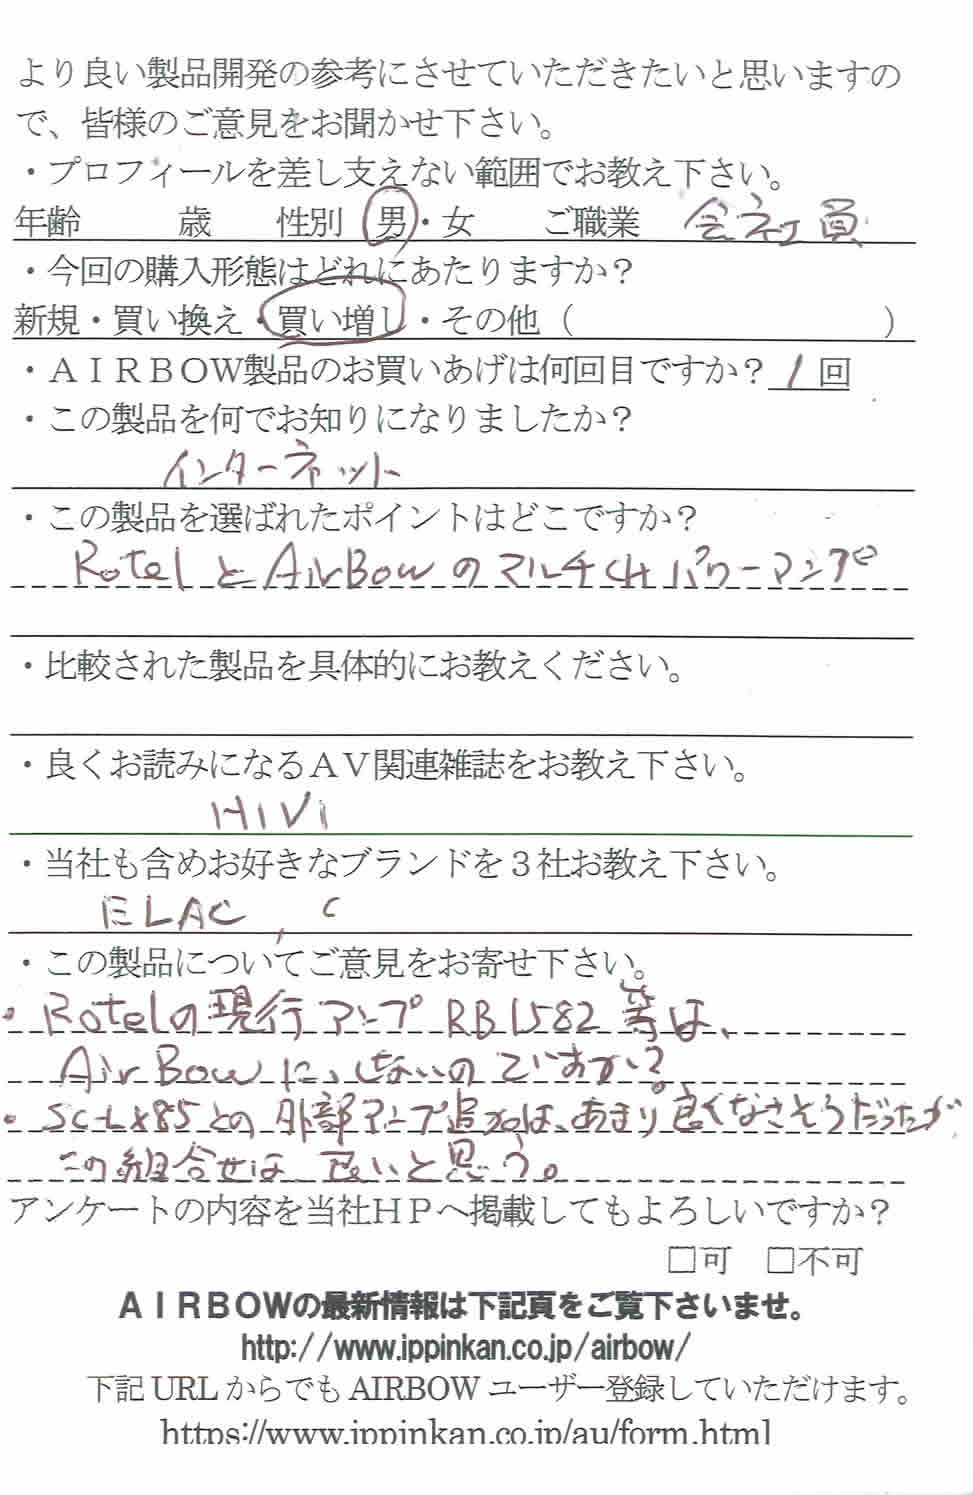 より良い製品開発の参考にさせていただきたいと思いますの
で、皆様のご意見をお聞かせ下さい。
・プロフィールを差し支えない範囲でお教え下さい。
年齢　　　歳　　性別　男・女　　ご職業　会社員
・今回の購入形態はどれにあたりますか？
新規・買い換え・買い増し・その他（　　　　　　　　　）
・ＡＩＲＢＯＷ製品のお買いあげは何回目ですか？ 1 回
・この製品を何でお知りになりましたか？
インターネット
・この製品を選ばれたポイントはどこですか？
RotelとAirBowのマルチCHパワーアンプ
・比較された製品を具体的にお教えください。
・良くお読みになるＡＶ関連雑誌をお教え下さい。
HiVi
・当社も含めお好きなブランドを３社お教え下さい。
ELAC,
・この製品についてご意見をお寄せ下さい。
・Rotelの現行アンプ RB1582等は、
AirBowにしないのですか？
・SC-LX85との外部アンプ追加は、あまり良くなさそうだったが
この組合せは、良いと思う。
アンケートの内容を当社ＨＰへ掲載してもよろしいですか？
□可　□不可
ＡＩＲＢＯＷの最新情報は下記頁をご覧下さいませ。
http://www.ippinkan.co.jp/airbow/
下記 URL からでも AIRBOW ユーザー登録していただけます。
https://www.ippinkan.co.jp/au/form.html